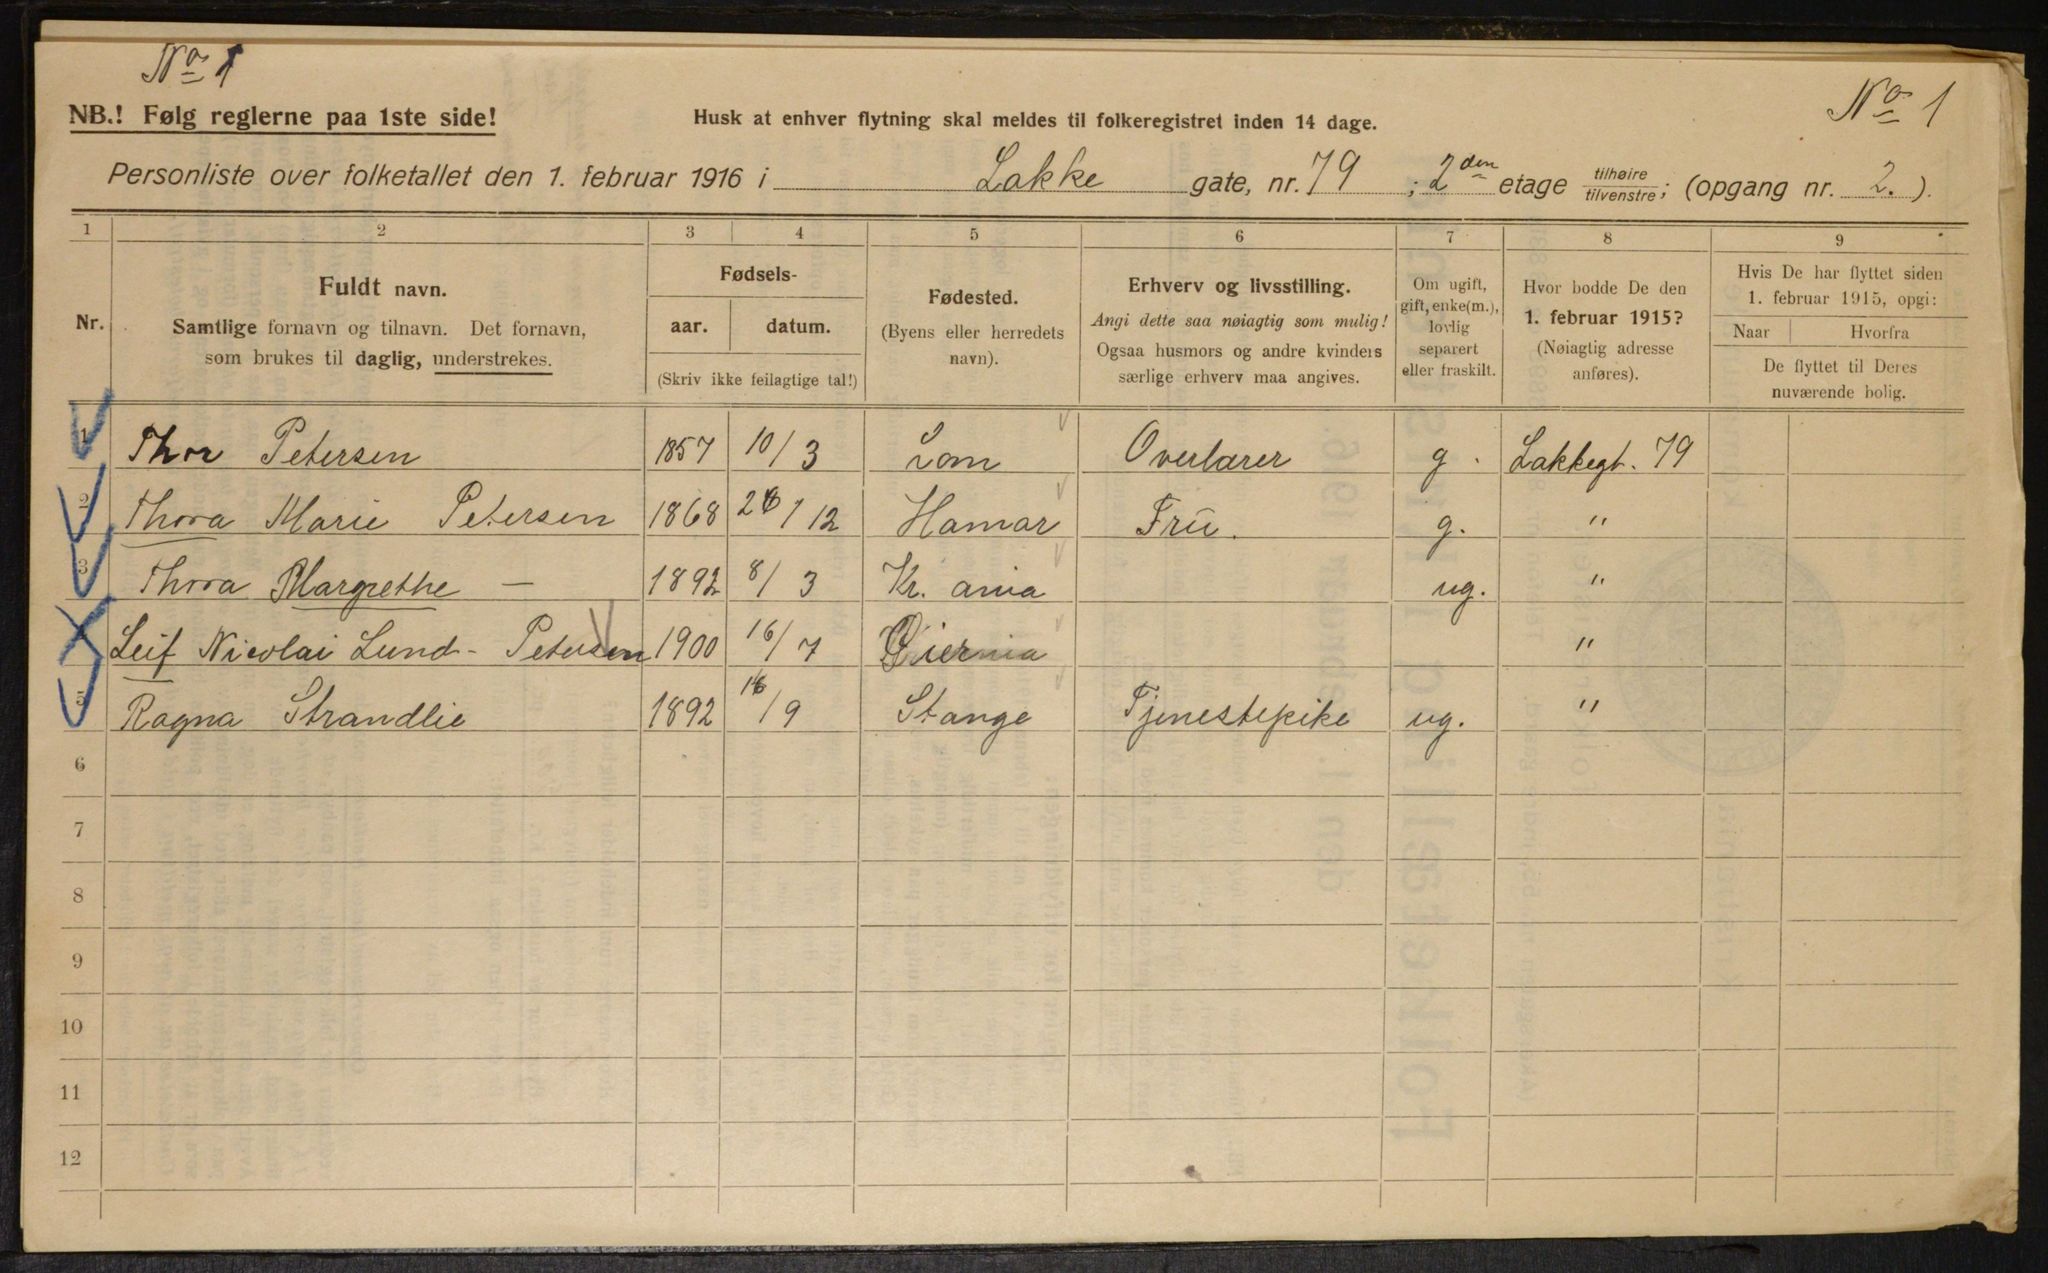 No 1
No 1
NB.! Følg reglerne paa 1ste side!
Husk at enhver flytning skal meldes til folkeregistret inden 14 dage.
Personliste over folketallet den 1. februar 1916 i Lakke gate, nr. 79 ; 2den etage tilhøire/tilvenstre; (opgang nr. 2. ).
1 2 3 4 5 6 7 8 9
Nr.
Fuldt navn.
Samtlige fornavn og tilnavn. Det fornavn,
som brukes til daglig, understrekes.
Fødsels-
aar. datum.
(Skriv ikke feilagtige tal!)
Fødested.
(Byens eller herredets
navn).
Erhverv og livsstilling.
Angi dette saa nøiagtig som mulig!
Ogsaa husmors og andre kvinders
særlige erhverv maa angives.
Om ugift,
gift, enke(m.),
lovlig
separert
eller fraskilt.
Hvor bodde De den
1. februar 1915?
(Nøiagtig adresse
anføres).
Hvis De har flyttet siden
1. februar 1915, opgi:
Naar Hvorfra
De flyttet til Deres
nuværende bolig.
1 Thor Petersen 1857 10/3 Lom Overlærer g. Lakkegt. 79
2 Thora Marie Petersen 1868 /12 Hamar Fru. g. "
3 Thora Margrethe — 1892 8/3 Kr. ania ug. "
Leif Nicolai Lund - Petersen 1900 16/7 "
5 Ragna Strandlie 1892 /9 Stange Tjenestepike ug. "
6
7
8
9
10
11
12